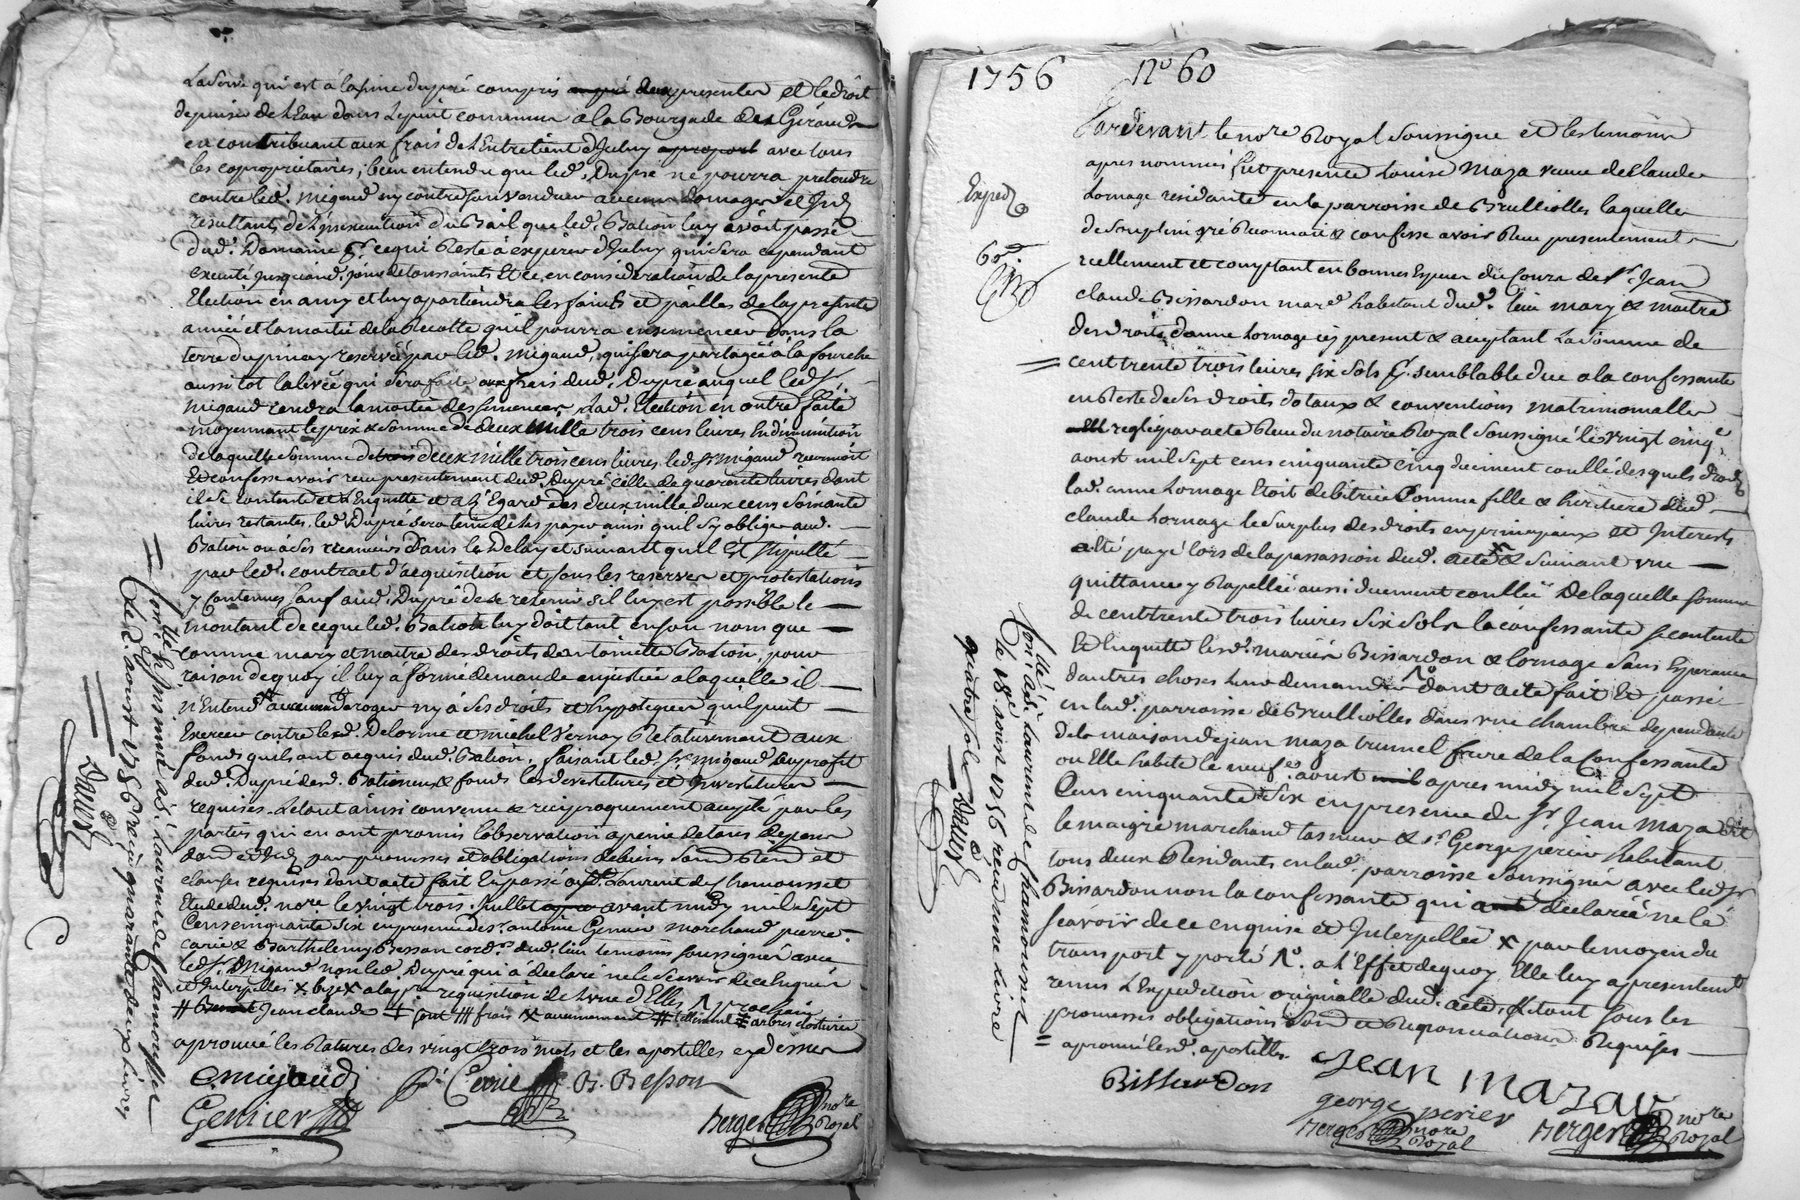 La serve qui est à la cime du pré compris presenter et le droit
de puiser de l'Eau dans le puit commun a la Bourgade des Giraud
en contribuant aux frais de l'Entretient d'Iceluy avec tous
les coproprietaires; bien entendu que led. Dupré ne pourra pretendre
contre led. migaud ny contre son vendeur aucuns domages et Int
resultants de l'inexecution du Bail que led. Bation luy avoit passé
dud. Domaine pr. ce qui Reste à expirer d'Iceluy qui sera cependant
executé jusqu'aud. jour de toussaints Et ce en consideration de la presente
Election en amy et luy apartiendra les foins et pailles de la presente
année et la moitié de la Recolte qu'il pourra ensemencer dans la
terre du pinay reservée par led. migaud, qui sera partagée à la fourche
aussi tot la levée qui sera faite aux frais dud. Dupré auquel led. Sr.
migaud rendra la moitié des semences Lad. Election en outre faite
moyennant le prix & somme de deux mille trois cens livres En diminution
de laquelle somme de deux mille trois cens livres led. Sr migaud reconnoit
Et confesse avoir reçu presentement dud. Dupré celle de quarente livres dont
il se contente et l'Enquitte et a l'Egard des deux mille deux cens soixante
livres restantes led. Dupré sera tenu de les payer ainsi qu'il s'y oblige aud.
Bation ou à ses creanciers dans le Delay et suivant qu'il Est stipullé
par led. contract d'acquisition et sous les reserves et protestations
y contenues sauf aud. Dupré de se retenir s'il luy est possible le
montant de ce que led. Bation luy doit tant en son nom que
comme mary et maitre des droits de antoinette Bation, pour
raison de quoy il luy a formé demande en justice a laquelle il
n'Entend deroger ny à ses droits et hypoteques qu'il peut
Exercer contre lesd. Delorme et michel Vernay Relativement aux
fonds qu'ils ont acquis dud. Bation, faisant led. Sr. migaud au profit
dud. Dupré desd. Batiments & fonds les devestitures et Investitures
requises. Le tout ainsi convenu & reciproquement accepté par les
parties qui en ont promis l'observation a peine de tous depens
dom et Int par promesses et obligations de biens Soud Rend et
clauses requises dont acte fait Et passé a St. Laurent de Chamousset
Etude dud. nore le vingt trois Juillet avant midy mil sept
Cens cinquante six en presence de sr. antoine Genier marchand pierre
carié & Barthelemy Besson cord. dud. lieu temoins soussignés avec
led Sr. Migaud non led. Dupré qui à declaré ne le scavoir de ce Enquis
et Interpellé
# Jean claude frais aucunement arbres closture
aprouvé les Ratures des vingt trois mots et les apostilles cy dessus
E migaud
pr Carié B. Besson
Genier
Berger nore Royal
Conllé & Insinué à St. Laurent de Chamousset
le 2 aoust 1756 Reçu quarante deux livres
Dalier
1756 No 60
Pardevant le nore Royal Soussigné et les temoins
apres nommés fut presente Louise Maza veuve de Claude
Lornage residante en la parroisse de Brulliolles laquelle
de son plein gré Reconnait & confesse avoir Reçu presentement
reellement et comptant en bonnes Especes du Cours de Sr. Jean
claude Bissardon mard. habitant dud. lieu mary & maitre
des droits d'anne Lornage icy present & aceptant La somme de
cent trente trois livres six sols pr. semblable due a la confessante
en Reste de ses droits dotaux & conventions matrimonialles
reglés par acte Reçu du notaire Royal soussigné le vingt cinq
aoust mil sept cens cinquante cinq duement conllé desquels droits
lad. anne Lornage Etoit debitrice Comme fille & heritiere dud.
claude Lornage le surplus des droits en principaux et Interests
a été payé lors de la passassion dud. acte & suivant une
quittance y Rapellée aussi duement conllée De laquelle somme
de cent trente trois livres six sols la confessante se contente
Et En quitte lesd. mariés Bissardon & Lornage Sans Esperance
d'autres choses leur demander dont acte fait Et passé
en lad. parroisse de Brulliolles dans une chambre dependante
de la maison de jean maza trunel frere de la Confessante
ou Elle habite le neuf. aoust apres midy mil sept
Cens cinquante six en presence de Sr Jean Maza dit
le maigre marchand tanneur & sr. George périer habitant
tous deux Residants en lad. parroisse soussignés avec led Sr
Bissardon non la confessante qui a declarée ne le
scavoir de ce enquise et Interpellée x par le moyen du
transport y porté a l'Effet de quoy Elle luy a presentement
remis l'Expedition originalle dud. acte, Le tout sous les
promesses obligations Soud et Renonciations Requises
aprouvé lesd. apostilles
Expedié
Bissardon
Jean Mazar
george perier
Berger nore Royal
Berger nore Royal
Conllé à St. Laurent de Chamousset
le 18e aoust 1756 reçu une livre
quatre sols
Dalier